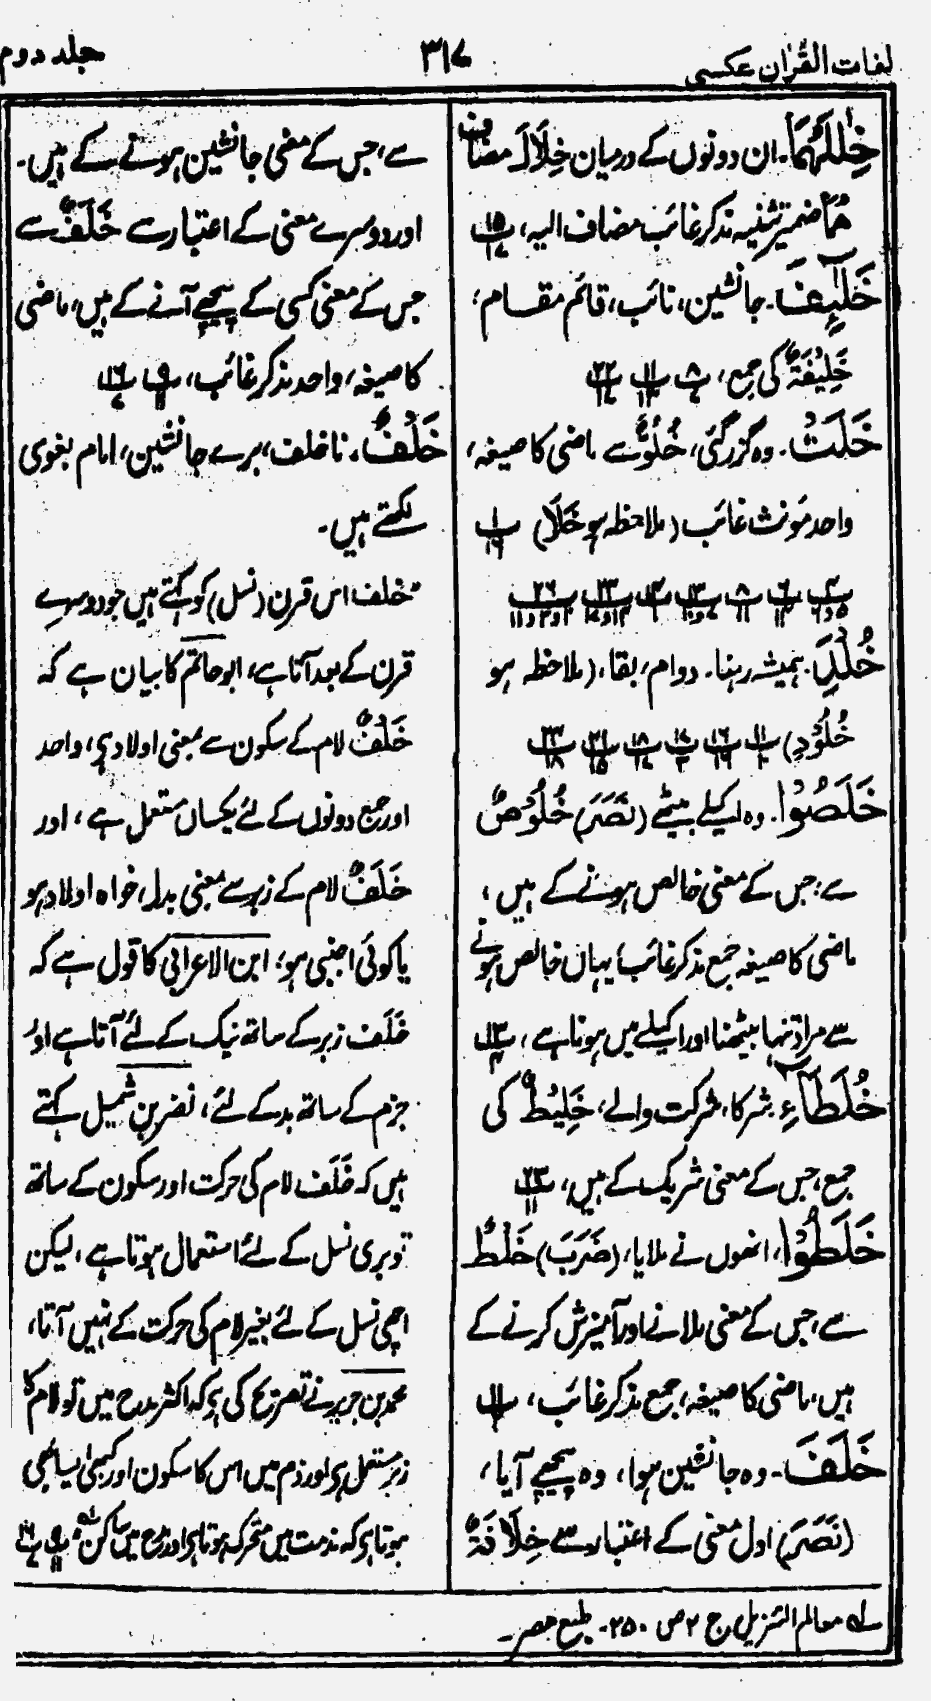 لغات القرآن عکسی
۳۱۷
جلد دوم
خِلٰلَهُمَا۔ ان دونوں کے درمیان خِلَالَ مضاف
هُمَا ضمیر تثنیہ مذکر غائب مضاف الیہ، ۱۵/۱۷
خَلٰٓئِفَ۔ جانشین، نائب، قائم مقام،
خَلِیْفَةٌ کی جمع، ۸/۷ ۱۱/۱۳ ۲۲/۱۷
خَلَتْ۔ وہ گزر گئی، خُلُوٌّ سے ماضی کا صیغہ،
واحد مؤنث غائب (ملاحظہ ہو خَلَا) ۱/۱۶
خُلْدِ۔ ہمیشہ رہنا۔ دوام، بقا، (ملاحظہ ہو
خُلُوْدِ) ۱۱/۱۰ ۱۶/۱۶ ۱۷/۲ ۱۸/۱۷ ۲۱/۱۵ ۲۳/۱۸
خَلَصُوْا۔ وہ اکیلے بیٹھے (نَصَرَ) خُلُوْصٌ
سے، جس کے معنی خالص ہونے کے ہیں،
ماضی کا صیغہ جمع مذکر غائب، یہاں خالص ہونے
سے مراد تنہا بیٹھنا اور اکیلے میں ہونا ہے، ۱۳/۴
خُلَطَآءِ۔ شرکا، شرکت والے، خَلِیْطٌ کی
جمع، جس کے معنی شریک کے ہیں، ۲۳/۱۱
خَلَطُوْا، انھوں نے ملایا، (ضَرَبَ) خَلْطٌ
سے، جس کے معنی ملانے اور آمیزش کرنے کے
ہیں، ماضی کا صیغہ، جمع مذکر غائب، ۱۱/۲
خَلَفَ۔ وہ جانشین ہوا، وہ پیچھے آیا،
(نَصَرَ) اول معنی کے اعتبار سے خِلَافَةٌ
سے، جس کے معنی جانشین ہونے کے ہیں۔
اور دوسرے معنی کے اعتبار سے خَلَفٌ سے
جس کے معنی کسی کے پیچھے آنے کے ہیں، ماضی
کا صیغہ، واحد مذکر غائب، ۹/۱۱ ۱۶/۷
خَلْفٌ۔ ناخلف، برے جانشین، امام بغوی
لکھتے ہیں۔
"خلف اس قرن (نسل) کو کہتے ہیں جو دوسرے
قرن کے بعد آتا ہے، ابو حاتم کا بیان ہے کہ
خَلْفٌ لام کے سکون سے بمعنی اولاد ہے، واحد
اور جمع دونوں کے لئے یکساں مستعمل ہے، اور
خَلَفٌ لام کے زبر سے بمعنی بدل، خواہ اولاد ہو
یا کوئی اجنبی ہو، ابن الاعرابی کا قول ہے کہ
خَلَف زبر کے ساتھ نیک کے لئے آتا ہے اور
جزم کے ساتھ بد کے لئے، نضر بن شمیل کہتے
ہیں کہ خَلَف لام کی حرکت اور سکون کے ساتھ
تو بری نسل کے لئے استعمال ہوتا ہے، لیکن
اچھی نسل کے لئے بغیر لام کی حرکت کے نہیں آتا،
محمد بن جریر نے تصریح کی ہے کہ اکثر مدح میں تو لام کا
زبر مستعمل ہے اور ذم میں اس کا سکون اور کبھی ایسا بھی
ہوتا ہے کہ مذمت میں متحرک ہوتا ہے اور مدح میں ساکن
لہ معالم التنزیل ج ۲ ص ۲۵۰۔ طبع مصر۔